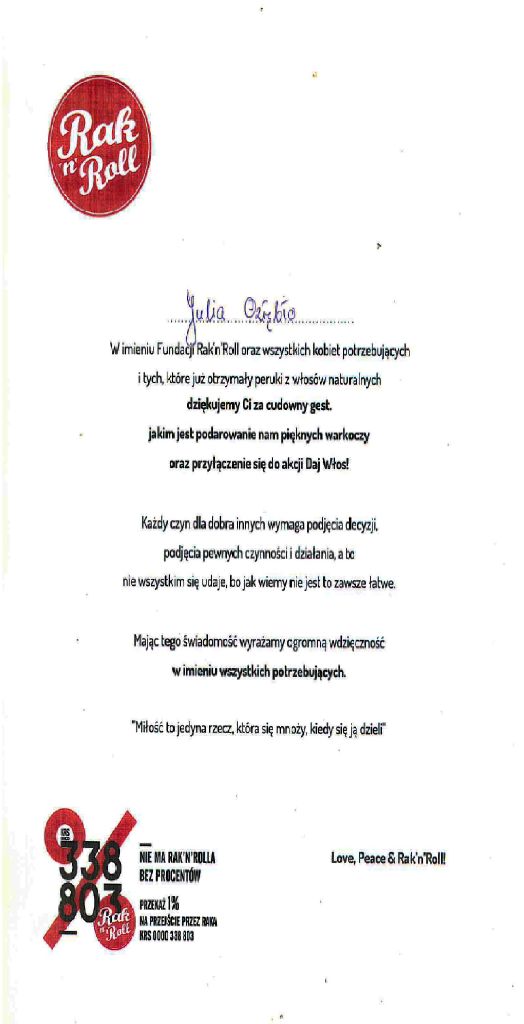 Rak
'n'
Roll
Julia
W imieniu Fundacji Rak'n'Roll oraz wszystkich kobiet potrzebujących
i tych, które już otrzymały peruki z włosów naturalnych
dziękujemy Ci za cudowny gest.
jakim jest podarowanie nam pięknych warkoczy
oraz przyłączenie się do akcji Daj Włos!
Każdy czyn dla dobra innych wymaga podjęcia decyzji,
podjęcia pewnych czynności i działania, a to
nie wszystkim się udaje, bo jak wiemy nie jest to zawsze łatwe.
Mając tego świadomość wyrażamy ogromną wdzięczność
w imieniu wszystkich potrzebujących.
"Miłość to jedyna rzecz, która się mnoży, kiedy się ją dzieli"
Love, Peace & Rak'n'Roll!
KRS
0000
338
803
Rak
'n'
Roll
NIE MA RAK'N'ROLLA
BEZ PROCENTÓW
PRZEKAŻ 1%
NA PRZEJŚCIE PRZEZ RAKA
KRS 0000 338 803